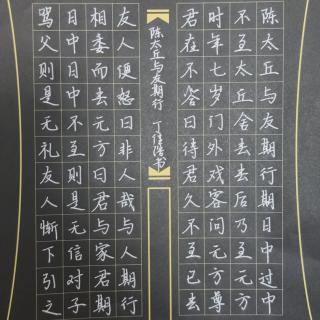 陈太丘与友期行期日中过中
不至太丘舍去去后乃至元方
时年七岁门外戏客问元方尊
君在不答曰待君久不至已去
陈太丘与友期行 丁佳浩书
友人便怒曰非人哉与人期行
相委而去元方曰君与家君期
日中日中不至则是无信对子
骂父则是无礼友人惭下引之